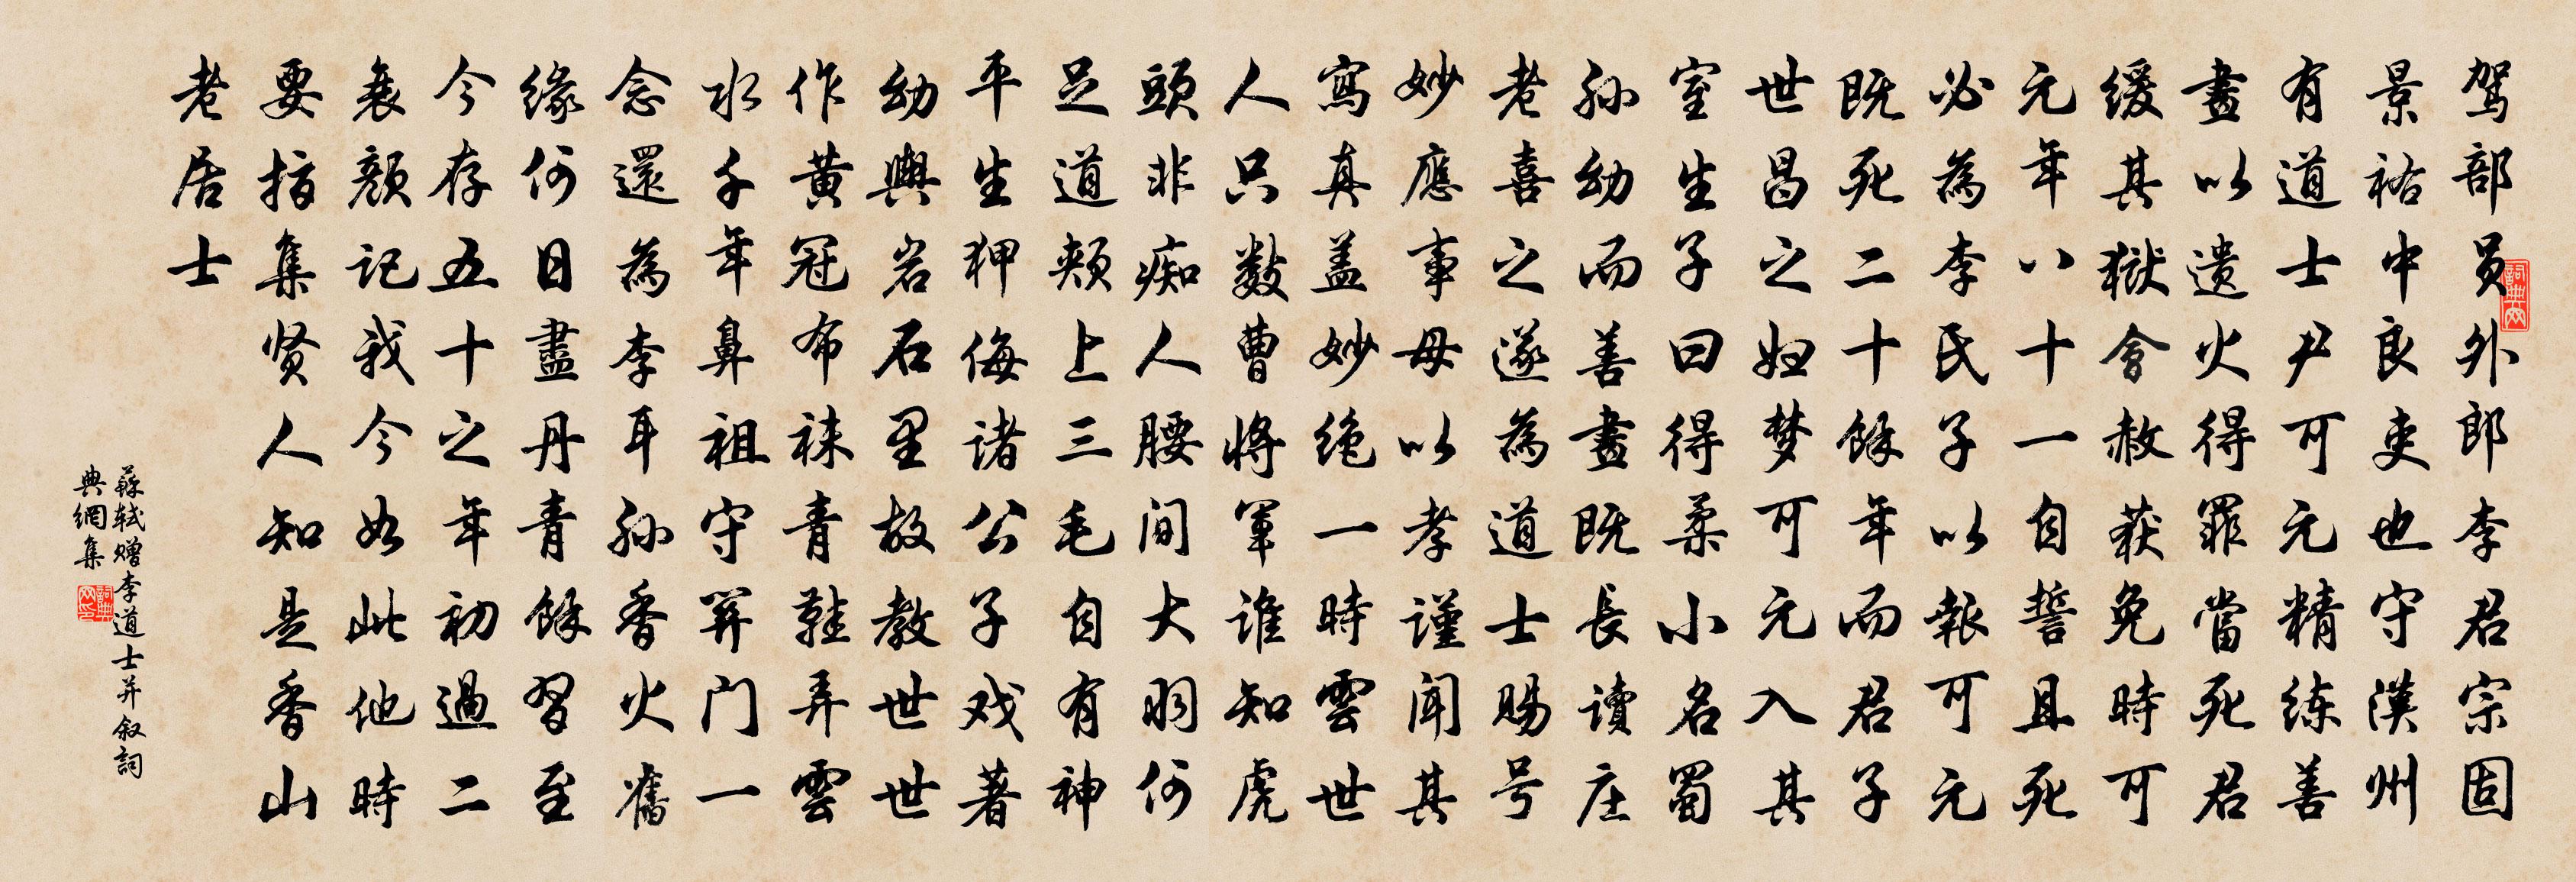 驾部员外郎李君宗固
景祐中良吏也守汉州
有道士尹可元精练善
畫以遗火得罪當死君
缓其獄會赦获免時可
元年八十一自誓且死
必為李氏子以報可元
既死二十餘年而君子
世昌之妇梦可元入其
室生子曰得柔小名蜀
孙幼而善畫既長讀庄
老喜之遂為道士賜号
妙應事母以孝谨闻其
寫真盖妙绝一時雲世
人只數曹将軍谁知虎
頭非痴人腰间大羽何
足道頰上三毛自有神
平生狎侮诸公子戏著
幼輿岩石里故教世世
作黄冠布袜青鞋弄雲
水千年鼻祖守關门一
念還為李耳孙香火舊
緣何日盡丹青餘習至
今存五十之年初過二
衰颜记我今如此他時
要指集贤人知是香山
老居士
蘇轼赠李道士并叙詞
典網集
詞典网
詞典网印